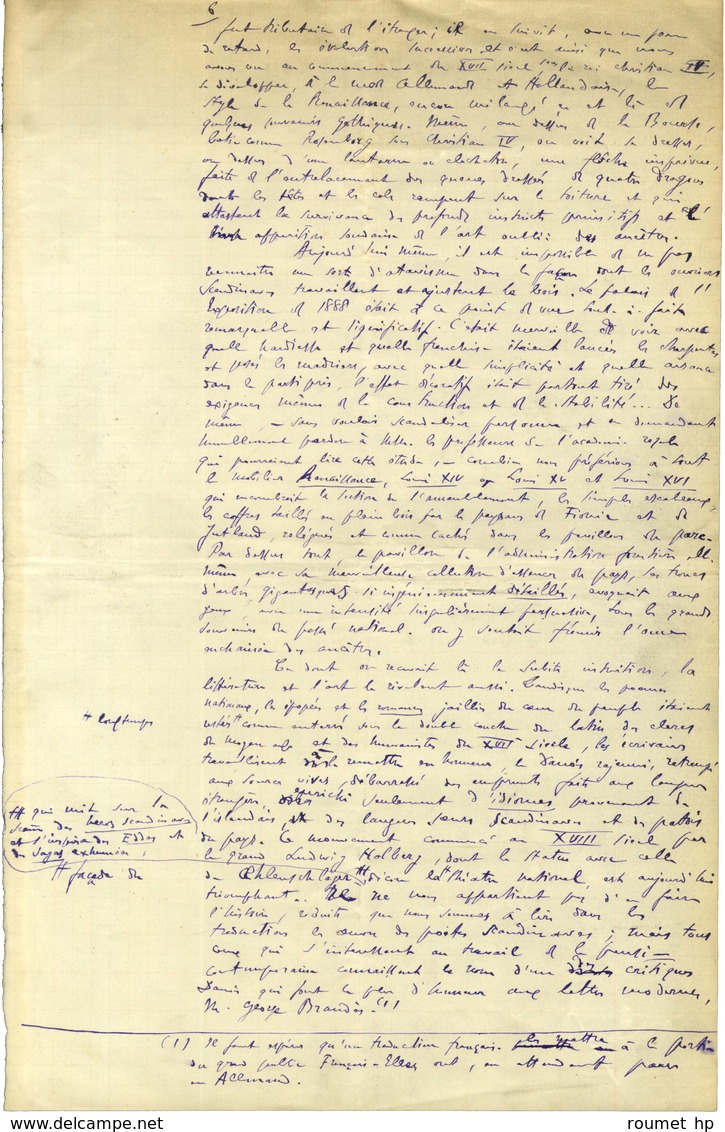 6
fut tributaire de l'étranger; il en suivit, avec un peu
de retard, les évolutions successives et c'est ainsi que nous
avons vu au commencement du XVII siècle sous le roi Christian IV,
se développer, à la mode allemande et Hollandaise, le
style de la Renaissance, encore mélangé çà et là de
quelques souvenirs gothiques. Même, au dessus de la Bourse,
bâtie comme Rosenborg sous Christian IV, on voit se dresser,
au dessus d'une lanterne ou clocheton, une flèche imprévue,
faite de l'entrelacement des queues dressées de quatre dragons
dont les têtes et les cols rampent sur la toiture et qui
attestent la survivance des profonds instincts primitifs et l'
apparition soudaine de l'art oublié des ancêtres.
Aujourd'hui même, il est impossible de ne pas
reconnaître une sorte d'atavisme dans la façon dont les ouvriers
scandinaves travaillent et ajustent le bois. Le palais de l'
Exposition de 1888 était à ce point de vue tout-à-fait
remarquable et significatif. C'était merveille de voir avec
quelle hardiesse et quelle franchise étaient lancées les charpentes
et posés les madriers, avec quelle simplicité et quelle aisance
dans le parti pris, l'effet décoratif était partout tiré des
exigences mêmes de la construction et de la stabilité... De
même, — sans vouloir scandaliser personne et en demandant
humblement pardon à MM. les professeurs de l'académie royale
qui pourraient lire cette étude, — combien nous préférions à tout
le mobilier Renaissance, Louis XIV ou Louis XV et Louis XVI
qui encombrait la section de l'ameublement, les simples escabeaux,
les coffres taillés en plein bois par les paysans de Fionie et de
Jutland, relégués et comme cachés dans les pavillons du parc.
Par dessus tout le pavillon de l'administration forestière elle-
même, avec sa merveilleuse collection d'essences du pays, ses troncs
d'arbres gigantesques si ingénieusement détaillés, évoquait aux
yeux avec une intensité singulièrement persuasive, tous les grands
souvenirs du passé national. On y sentait frémir l'âme
des ancêtres.
Ce dont on recevait là la subite intuition, la
littérature et l'art le révèlent aussi. Tandis que les poèmes
nationaux, les épopées et les romances jaillis du cœur du peuple étaient
restés # comme enterrés sous la double couche du latin des clercs
# longtemps
du moyen age et des humanistes du XVII siècle, les écrivains
travaillent à remettre en honneur, le Danois rajeuni, retrempé
aux sources vives, débarrassé des emprunts faits aux langues
étrangères, enrichi seulement d'idiomes provenant de
l'islandais, des langues sœurs scandinaves et des patois
du pays. Ce mouvement commencé au XVIII siècle par
le grand Ludwig Holberg, dont la statue avec celle
de Oehlenschlager ## décore la # théâtre national, est aujourd'hui
## qui mit sur la
scène des héros scandinaves
et s'inspira des Eddas et
des Sagas exhumées,
# façade du
triomphant. Il ne nous appartient pas d'en faire
l'histoire, réduits que nous sommes à lire dans les
traductions les œuvres des poètes scandinaves; mais tous
ceux qui s'intéressent au travail de la pensée
contemporaine connaissent le nom d'un des critiques
Danois qui font le plus d'honneur aux lettres modernes,
M. George Brandès. (1)
(1) Il faut espérer qu'une traduction française les mettra à la portée
du grand public Français. Elles ont, en attendant paru
en Allemand.
roumet hp